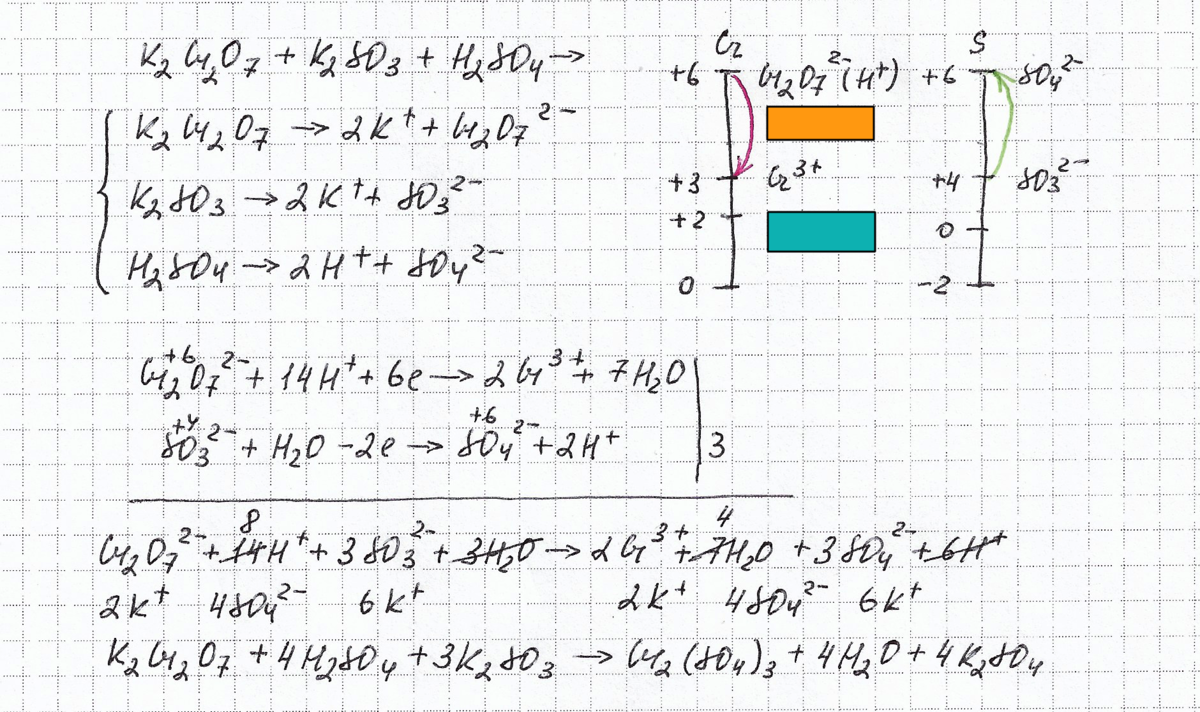 K₂Cr₂O₇ + K₂SO₃ + H₂SO₄ →
K₂Cr₂O₇ → 2K⁺ + Cr₂O₇²⁻
K₂SO₃ → 2K⁺ + SO₃²⁻
H₂SO₄ → 2H⁺ + SO₄²⁻
Cr
+6 Cr₂O₇²⁻(H⁺)
+3 Cr³⁺
+2
0
S
+6 SO₄²⁻
+4 SO₃²⁻
0
-2
+6
Cr₂O₇²⁻ + 14H⁺ + 6e → 2Cr³⁺ + 7H₂O
+4 +6
SO₃²⁻ + H₂O - 2e → SO₄²⁻ + 2H⁺ | 3
8 4
Cr₂O₇²⁻ + 14H⁺ + 3SO₃²⁻ + 3H₂O → 2Cr³⁺ + 7H₂O + 3SO₄²⁻ + 6H⁺
2K⁺ 4SO₄²⁻ 6K⁺ 2K⁺ 4SO₄²⁻ 6K⁺
K₂Cr₂O₇ + 4H₂SO₄ + 3K₂SO₃ → Cr₂(SO₄)₃ + 4H₂O + 4K₂SO₄